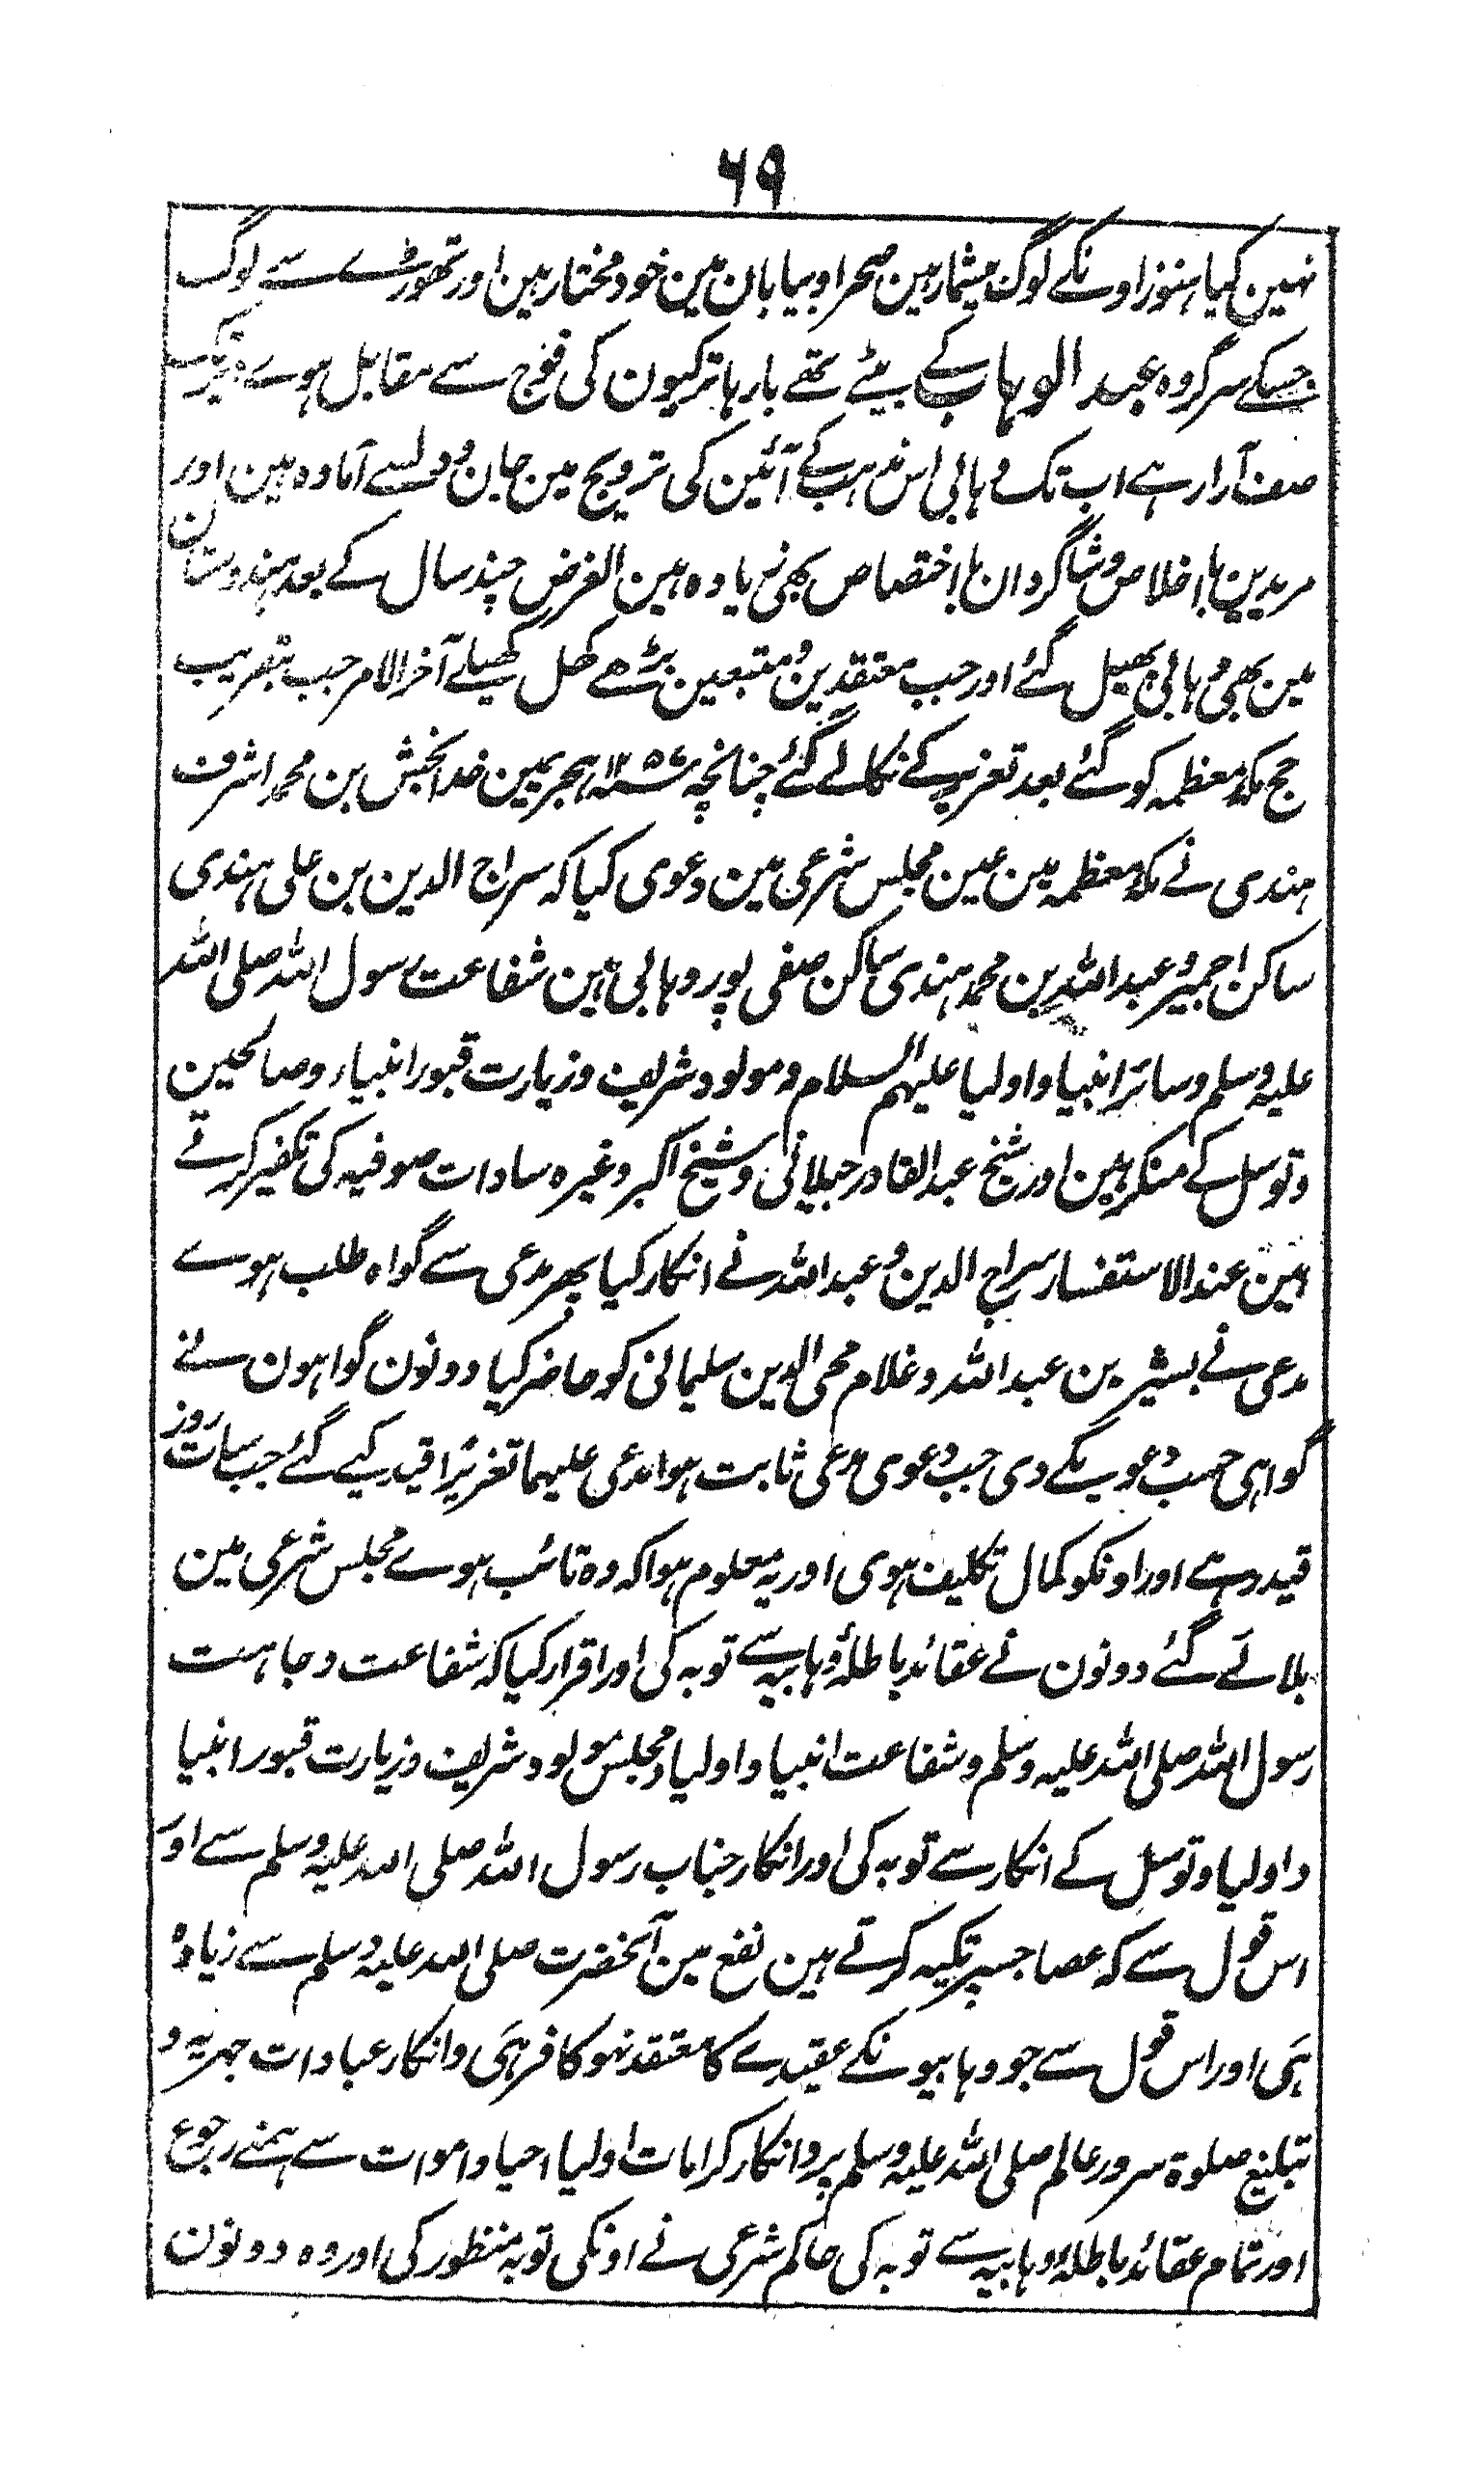 ۶۹
نہین کیا ہنوز اونکے لوگ بیشمار ہین صحرا و بیابان مین خود مختار ہین اور تھوڑے سے لوگ
جسکے سرگروہ عبد الوہاب کے بیٹے تھے بارہا ترکیون کی فوج سے مقابل ہوے
صف آرا رہے اب تک وہابی اس مذہب کے آئین کی ترویج مین جان و دلسے آمادہ ہین اور
مریدین با اخلاص و شاگردان با اختصاص بھی زیادہ ہین الغرض چند سال کے بعد ہندوستان
مین بھی وہابی پھیل گئے اور جب معتقدین و متبعین بڑھے کھل کھیلے آخر الامر جب بتقریب
حج مکۂ معظمہ کو گئے بعد تعزیر کے نکالے گئے چنانچہ ہجریمین خدا بخش بن محمد اشرف
ہندی نے مکۂ معظمہ مین عین مجلس شرعی مین دعوی کیا کہ سراج الدین بن علی ہندی
ساکن اجمیر و عبد اللہ بن محمد ہندی ساکن صفی پور وہابی ہین شفاعت رسول اللہ صلی اللہ
علیہ وسلم و سائر انبیا و اولیا علیہم السلام و مولود شریف و زیارت قبور انبیاء و صالحین
و توسل کے منکر ہین اور شیخ عبد القادر جیلانی و شیخ اکبر وغیرہ سادات صوفیہ کی تکفیر کرتے
ہین عند الاستفسار سراج الدین و عبد اللہ نے انکار کیا پھر مدعی سے گواہ طلب ہوے
مدعی نے بشیر بن عبد اللہ و غلام محی الدین سلیمانی کو حاضر کیا دونون گواہون نے
گواہی حسب دعویکے دی جب دعوی مدعی ثابت ہوا مدعی علیہما تعزیرًا قید کیے گئے جب سات روز
قید رہے اور اونکو کمال تکلیف ہوی اور یہ معلوم ہوا کہ وہ تائب ہوے مجلس شرعی مین
بلائے گئے دونون نے عقائد باطلۂ وہابیہ سے توبہ کی اور اقرار کیا کہ شفاعت وجاہت
رسول اللہ صلی اللہ علیہ وسلم و شفاعت انبیا و اولیا و مجلس مولود شریف و زیارت قبور انبیا
و اولیا و توسل کے انکار سے توبہ کی اور انکار جناب رسول اللہ صلی اللہ علیہ وسلم سے اور
اس قول سے کہ عصا جسپر تکیہ کرتے ہین نفع مین آنحضرت صلی اللہ علیہ وسلم سے زیادہ
ہَی اور اس قول سے جو وہابیونکے عقیدے کا معتقد نہو کافر ہَی و انکار عبادات جہریہ و
تبلیغ صلوۃ سرور عالم صلی اللہ علیہ وسلم پر و انکار کرامات اولیا احیا و اموات سے ہمنے رجوع
اور تمام عقائد باطلۂ وہابیہ سے توبہ کی حاکم شرعی نے اونکی توبہ منظور کی اور وہ دونون